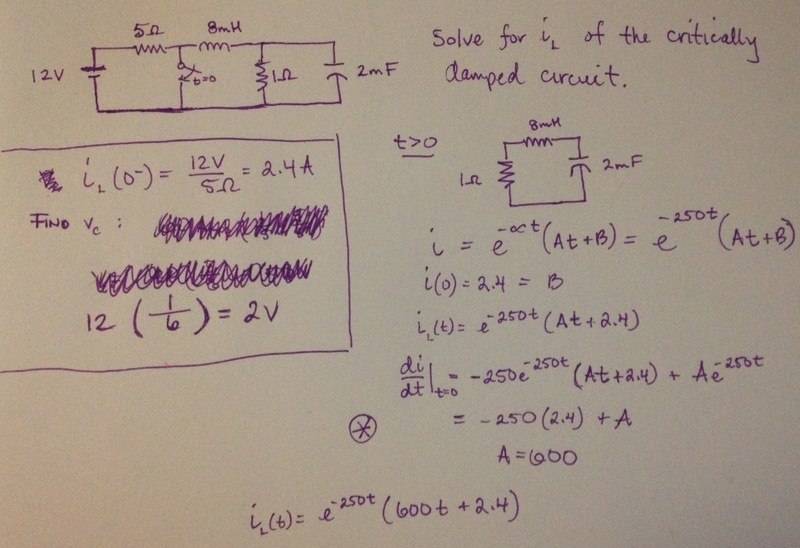 Solve for i_L of the critically
damped circuit.
5Ω 8mH
12V t=0 1Ω 2mF
i_L(0⁻) = 12V/5Ω = 2.4A
FIND v_c :
12 (1/6) = 2V
t>0
8mH
1Ω 2mF
i = e^-αt (At+B) = e^-250t (At+B)
i(0) = 2.4 = B
i_L(t) = e^-250t (At+2.4)
di/dt|t=0 = -250e^-250t (At+2.4) + Ae^-250t
= -250(2.4) + A
A=600
i_L(t) = e^-250t (600t + 2.4)